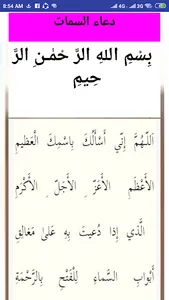 8:54 AM
4G 3G
دعاء السمات
بِسْمِ اللهِ الرَّ حْمٰنِ الرَّ
حِيمِ
اَللّٰهُمَّ إِنِّي أَسْأَلُكَ بِاسْمِكَ الْعَظِيمِ
الْأَعْظَمِ الْأَعَزِّ الْأَجَلِّ الْأَكْرَمِ
الَّذِي إِذَا دُعِيتَ بِهِ عَلىٰ مَغَالِقِ
أَبْوَابِ السَّمَاءِ لِلْفَتْحِ بِالرَّحْمَةِ